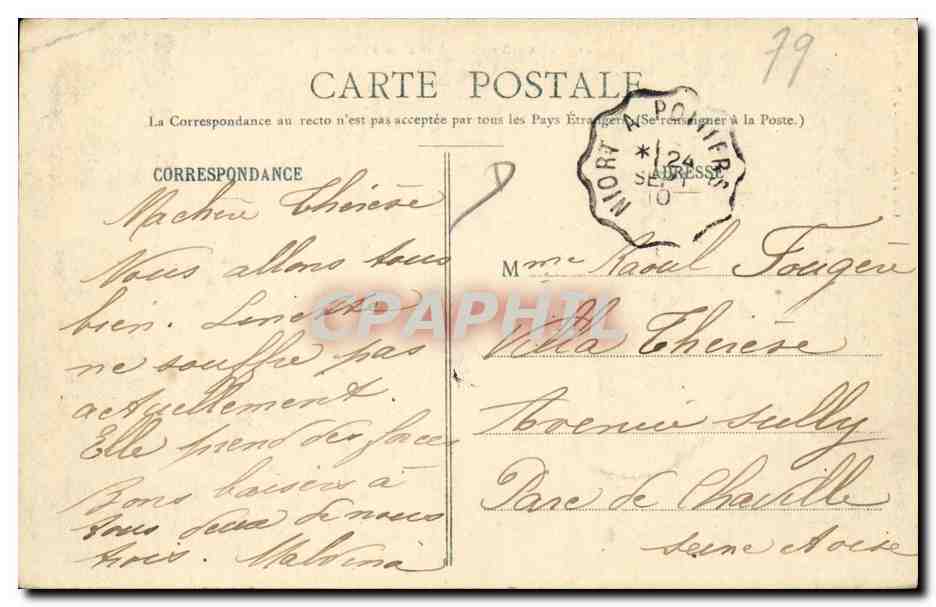 79
CARTE POSTALE
La Correspondance au recto n'est pas acceptée par tous les Pays Étrangers. (Se renseigner à la Poste.)
NIORT A POITIERS
* 24
SEPT
10
CORRESPONDANCE
Ma chère Thérèse
Nous allons tous
bien. Linette
ne souffre pas
actuellement.
Elle prend des forces
Bons baisers à
tous deux de nous
trois. Maldina
ADRESSE
Mme Raoul Fougère
Villa Thérèse
Avenue Sully
Parc de Chaville
Seine et Oise
CPAPHIL